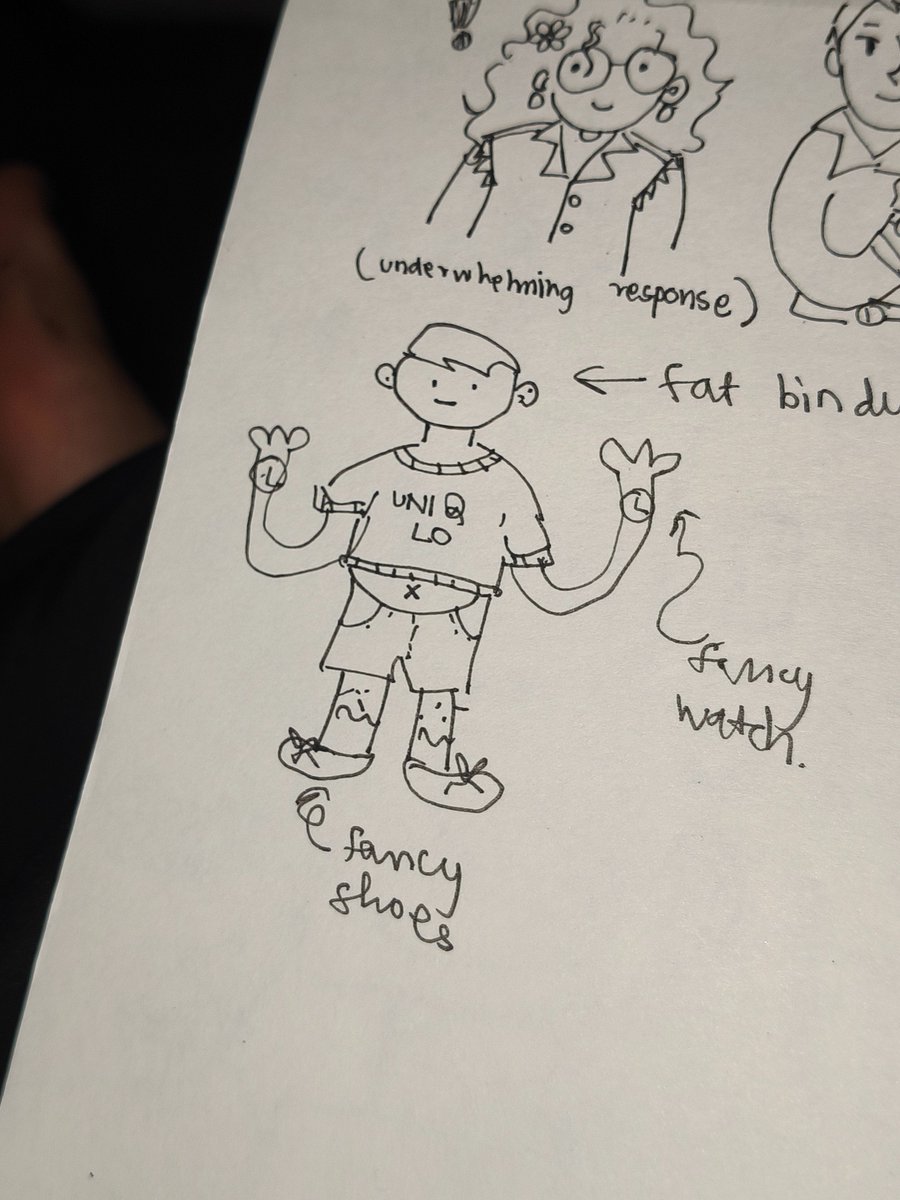 (underwhehming response)
← fat bindu
UNIQ
LO
fancy
watch.
fancy
shoes